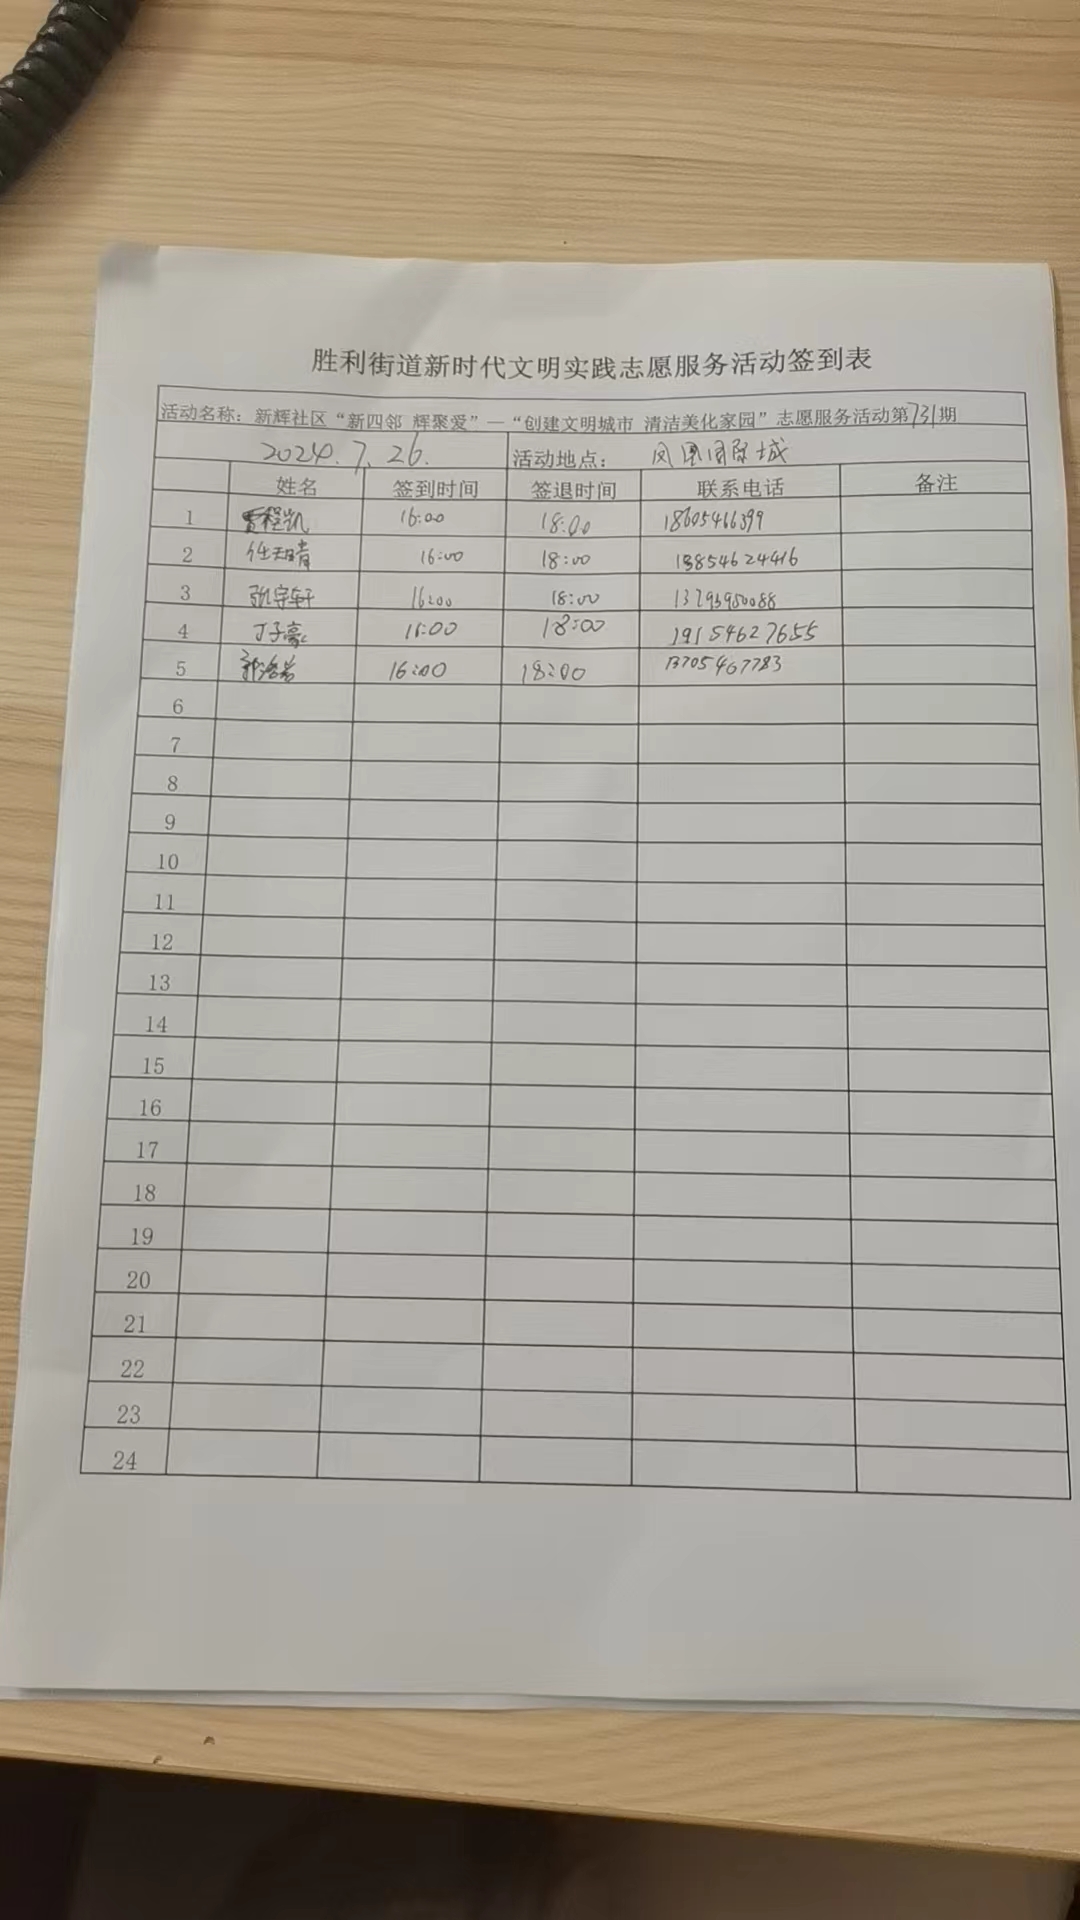 胜利街道新时代文明实践志愿服务活动签到表
活动名称：新辉社区“新四邻 辉聚爱”—“创建文明城市 清洁美化家园”志愿服务活动第731期
2024.7.26. 活动地点： 凤凰国际城
姓名 签到时间 签退时间 联系电话 备注
1 贾程凯 16:00 18:00 18605466399
2 任天晴 16:00 18:00 13854624416
3 张宇轩 16:00 18:00 13793980088
4 丁子豪 16:00 18:00 19154627655
5 郭 16:00 18:00 13705467783
6
7
8
9
10
11
12
13
14
15
16
17
18
19
20
21
22
23
24